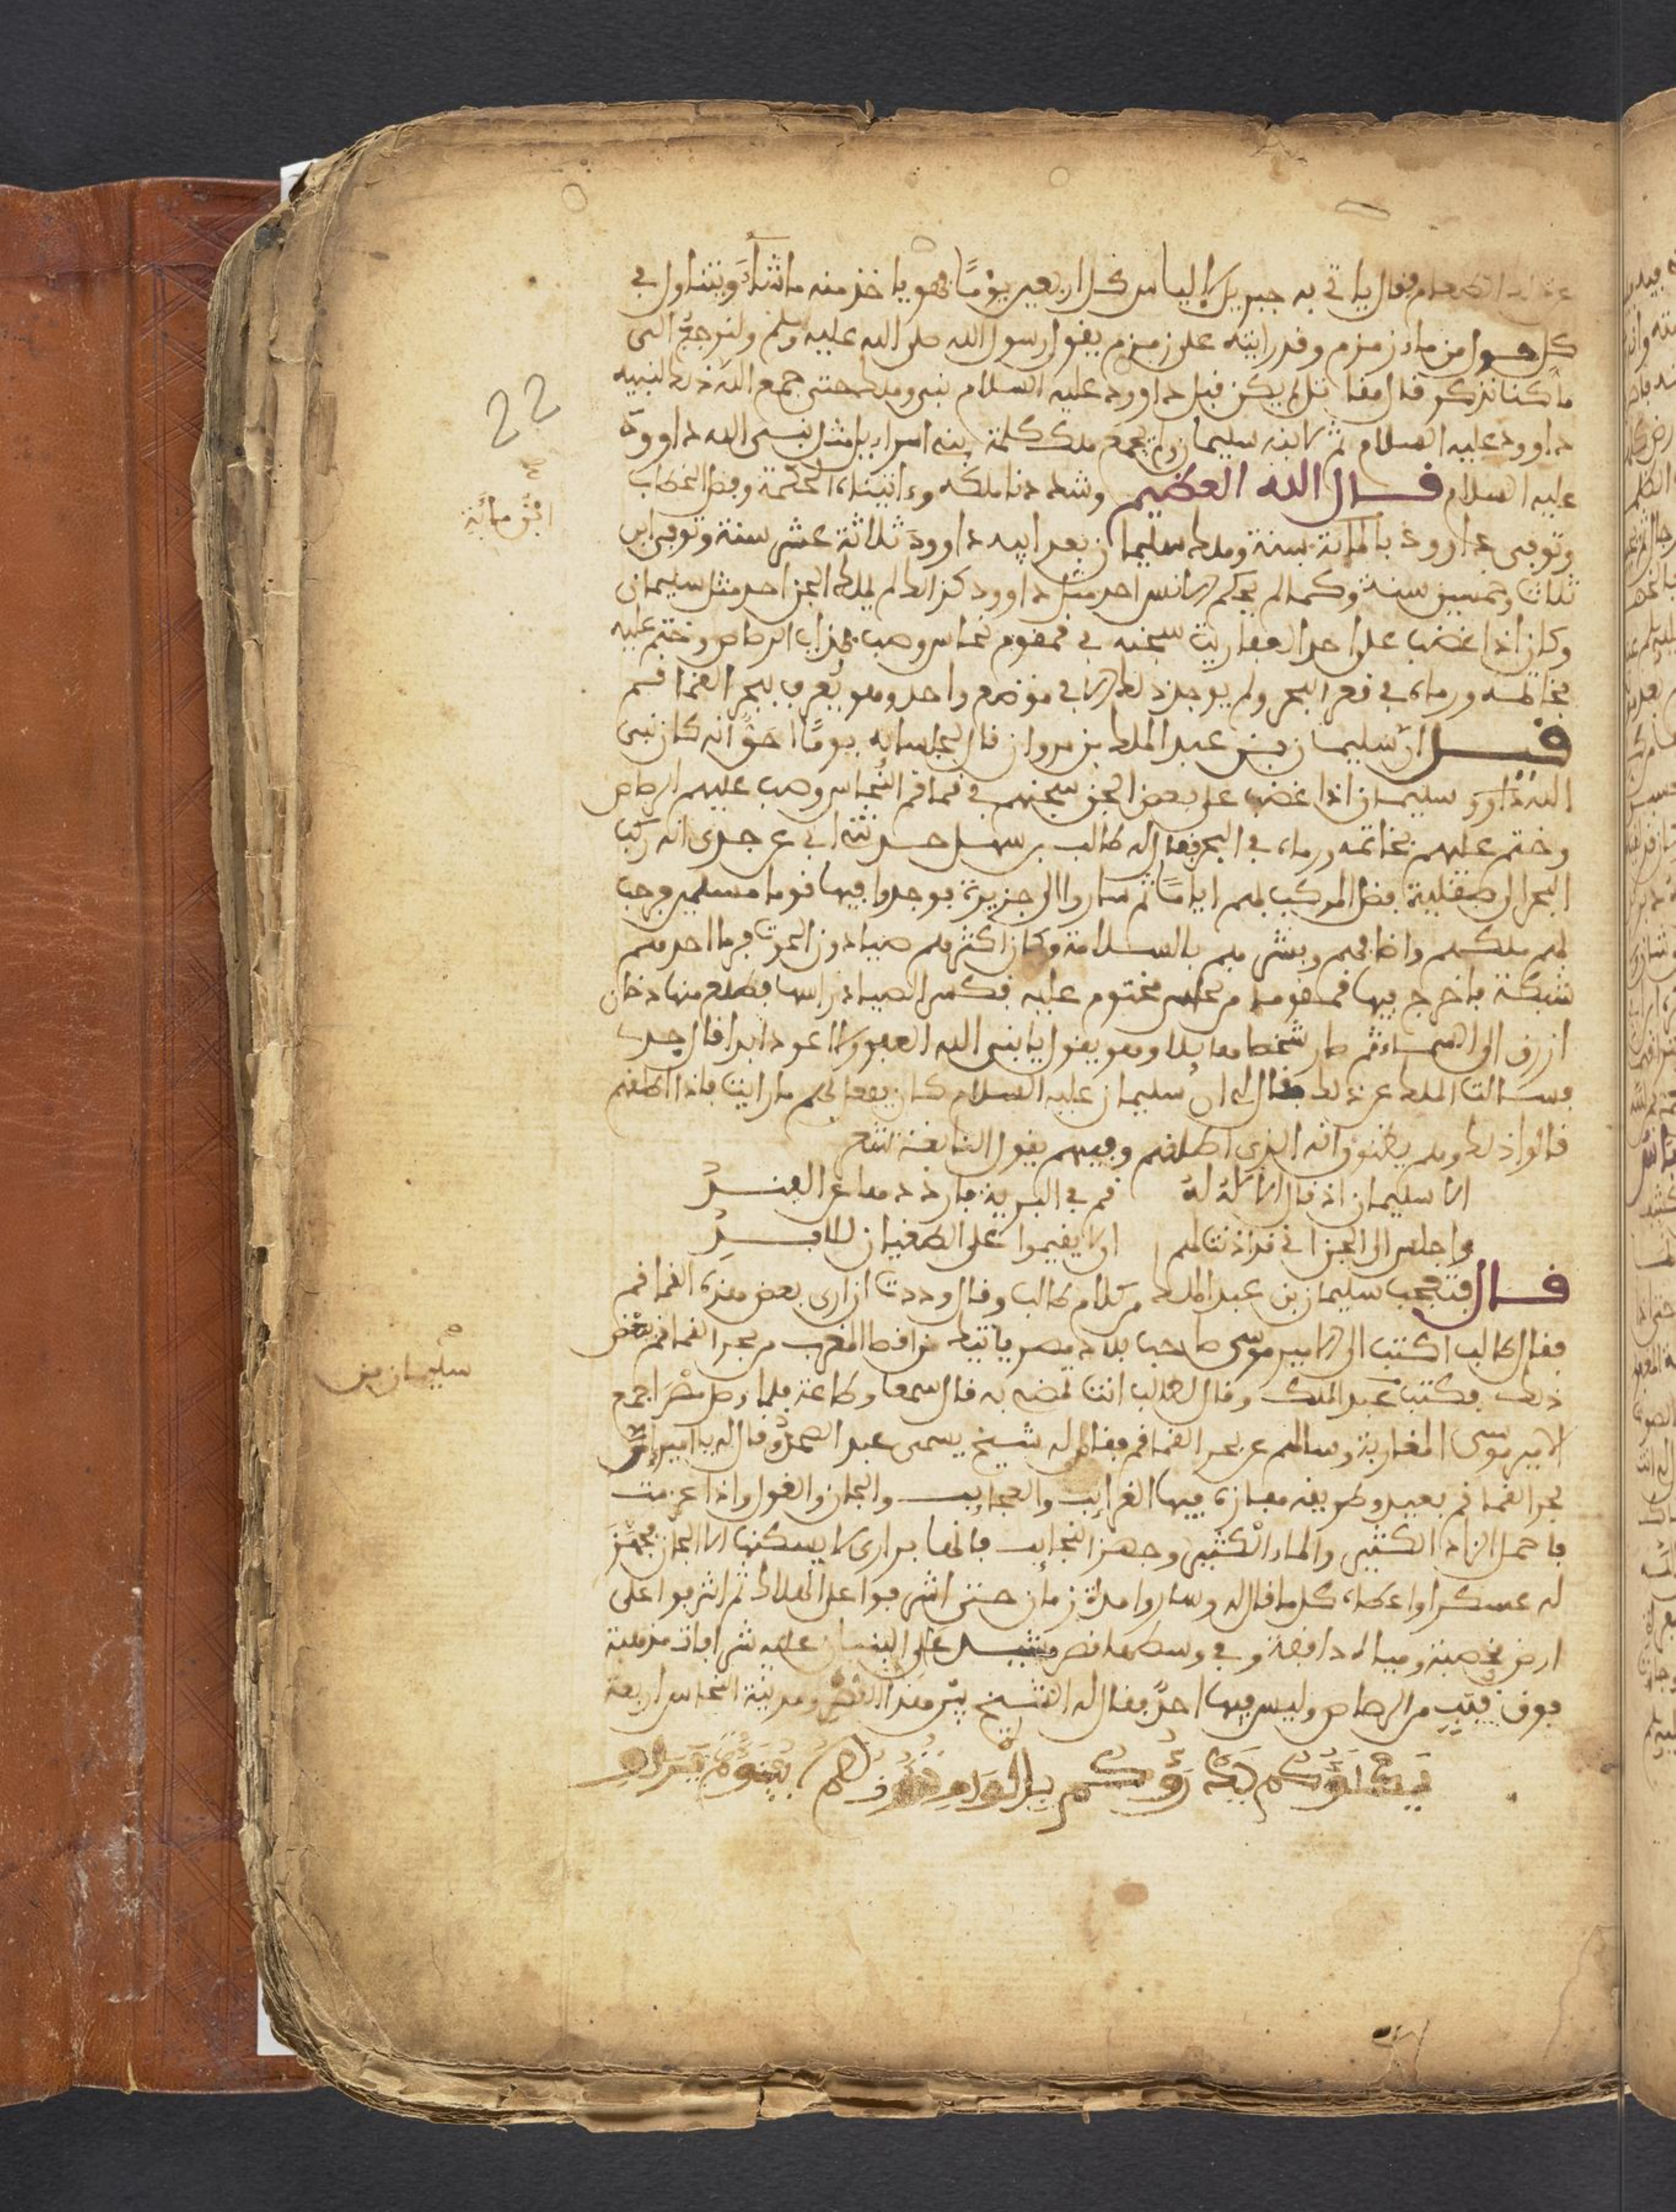 عن الطعام فقال ياتي به جبريل الى الياس كل اربعين يومًا فهو ياخذ منه ما شاء ويتناول في
كل حول من ماء زمزم وقد رايته على زمزم يقول رسول الله صلى الله عليه وسلم ولنرجع الى
ما كنا نذكر قال مقاتل لم يكن قبل داوود عليه السلام نبي وملك حتى جمع الله ذلك لنبيه
داوود عليه السلام ثم لابنه سليمان ولم يجمع ملك كلمة بنه اسراءيل مثل نبي الله داوود
عليه السلام قال الله العظيم وشددنا ملكه وءاتيناه الحكمة وفصل الخطاب
وتوفى داوود بالمائة سنة وملك سليمان بعد ابيه داوود ثلاثة عشر سنة وتوفى ابن
ثلاث وخمسين سنة وكما لم يحكم الانس احد مثل داوود كذالك لم يملك الجن احد مثل سليمان
وكان اذا غضب على احد العفاريت سجنه في قمقوم نحاس وصب بمذاب الرصاص وختم عليه
بخاتمه ورماه في قعر البحر ولم يوجد ذلك الا في موضع واحد وهو يعرف ببحر القماقم
قيل ان سليمان بن عبد الملك بن مروان قال لجلسائه يومًا احق انه كان نبي
الله داوود سليمان اذا غضب على بعض الجن سجنهم في قماقم النحاس وصب عليهم الرصاص
وختم عليهم بخاتمه ورماه في البحر فقال له طالب بن سهل حدثني ابي عن جدي انه ركب
البحر الى صقلية فضل المركب بهم اياما ثم ساروا الى جزيرة فوجدوا فيها قوما مسلمين فرحب
بهم ملكهم واضافهم وبشرهم بالسلامة وكان اكثرهم صيادون الحوت فرما احدهم
شبكة فاخرج فيها قمقوما من نحاس مختوم عليه فكسر الصياد راسها فطلع منها دخان
ازرق الى السماء ثم صار شخصا هايلا وهو يقول يا نبي الله العفو ولا اعود ابدا قال جدي
فسالت الملك عن ذلك فقال لي ان سليمان عليه السلام كان يفعل بهم ما رايت فاذا اطلقهم
قالوا ذلك وهم يظنون انه الذي اطلقهم وفيهم يقول النابغة شعر
الا سليمان اذ قال الاله له قم في البرية فارددها عن الفند
واجلس الى الجن اني قد اذنت لهم
قال فتعجب سليمان بن عبد الملك من كلام طالب وقال وددت ان ارى بعض هذه القماقم
فقال طالب اكتب الى الامير موسى صاحب بلاد مصر ياتيك من اقطا المغرب من بحر القماقم بعض
ذلك فكتب عبد الملك وقال لطالب انت تمض به قال سمعا وطاعة فلما وصل مصر اجمع
الامير موسى المغاربة وسالهم عن بحر القماقم فقال له شيخ يسمى عبد الصمد وقال له يا امير ان
بحر القماقم بعيد وطريقه مفازه فيها الغرايب والعجايب والجان والغول واذا عزمت
فاحمل الزاد الكثير والماء الكثير وجهز النجايب فانها براري لا يسكنها الا الجان فجهز
له عسكرا واعطاه كل ما قال له وساروا مدة زمان حتى اشرفوا على اطلال ثم اشرفوا على
ارض مخصبة ومياه دافقة وفي وسطها قصر مشيد عالي البنيان عليه شرافات مذهبة
فوق قبب من الرصاص وليس فيها احد فقال له الشيخ بين هذا القصر ومدينة النحاس اربعة
22
سليمان بن